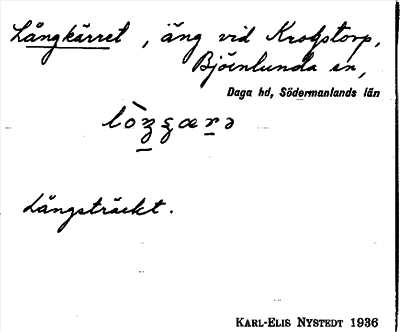 Långkärret, äng vid Krokstorp,
Björnlunda sn,
Daga hd, Södermanlands län
Långsträckt.
KARL-ELIS NYSTEDT 1936